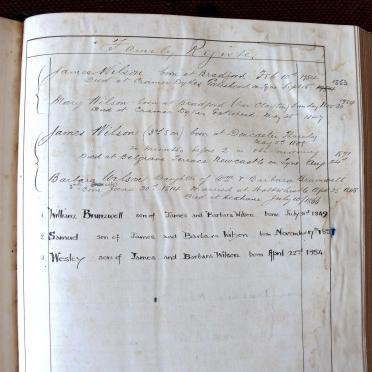 Family Register
James Wilson born at Bradford Feb 10th 1863
Died at Cramer Dykes Gateshead on Tyne Sept 15
Mary Wilson born at Bradford Sunday Nov 26
Died at Cramer Dykes Gateshead May 25 1847
James Wilson (3d son) born at Thursday
May 5th 1808
minutes before 2 in the morning
Died at Belgrave Terrace Newcastle on Tyne Aug 24th 1891
Barbara Wilson Daughter of Wm & Barbara Brumwell
born June 30th 1814 Married at Apr 25 1848
Died at July 10/1886
1 William Brumwell son of James and Barbara Wilson born July 31st 1849
2 Samuel son of James and Barbara Wilson born November 17th
3 Wesley son of James and Barbara Wilson born April 22nd 1854